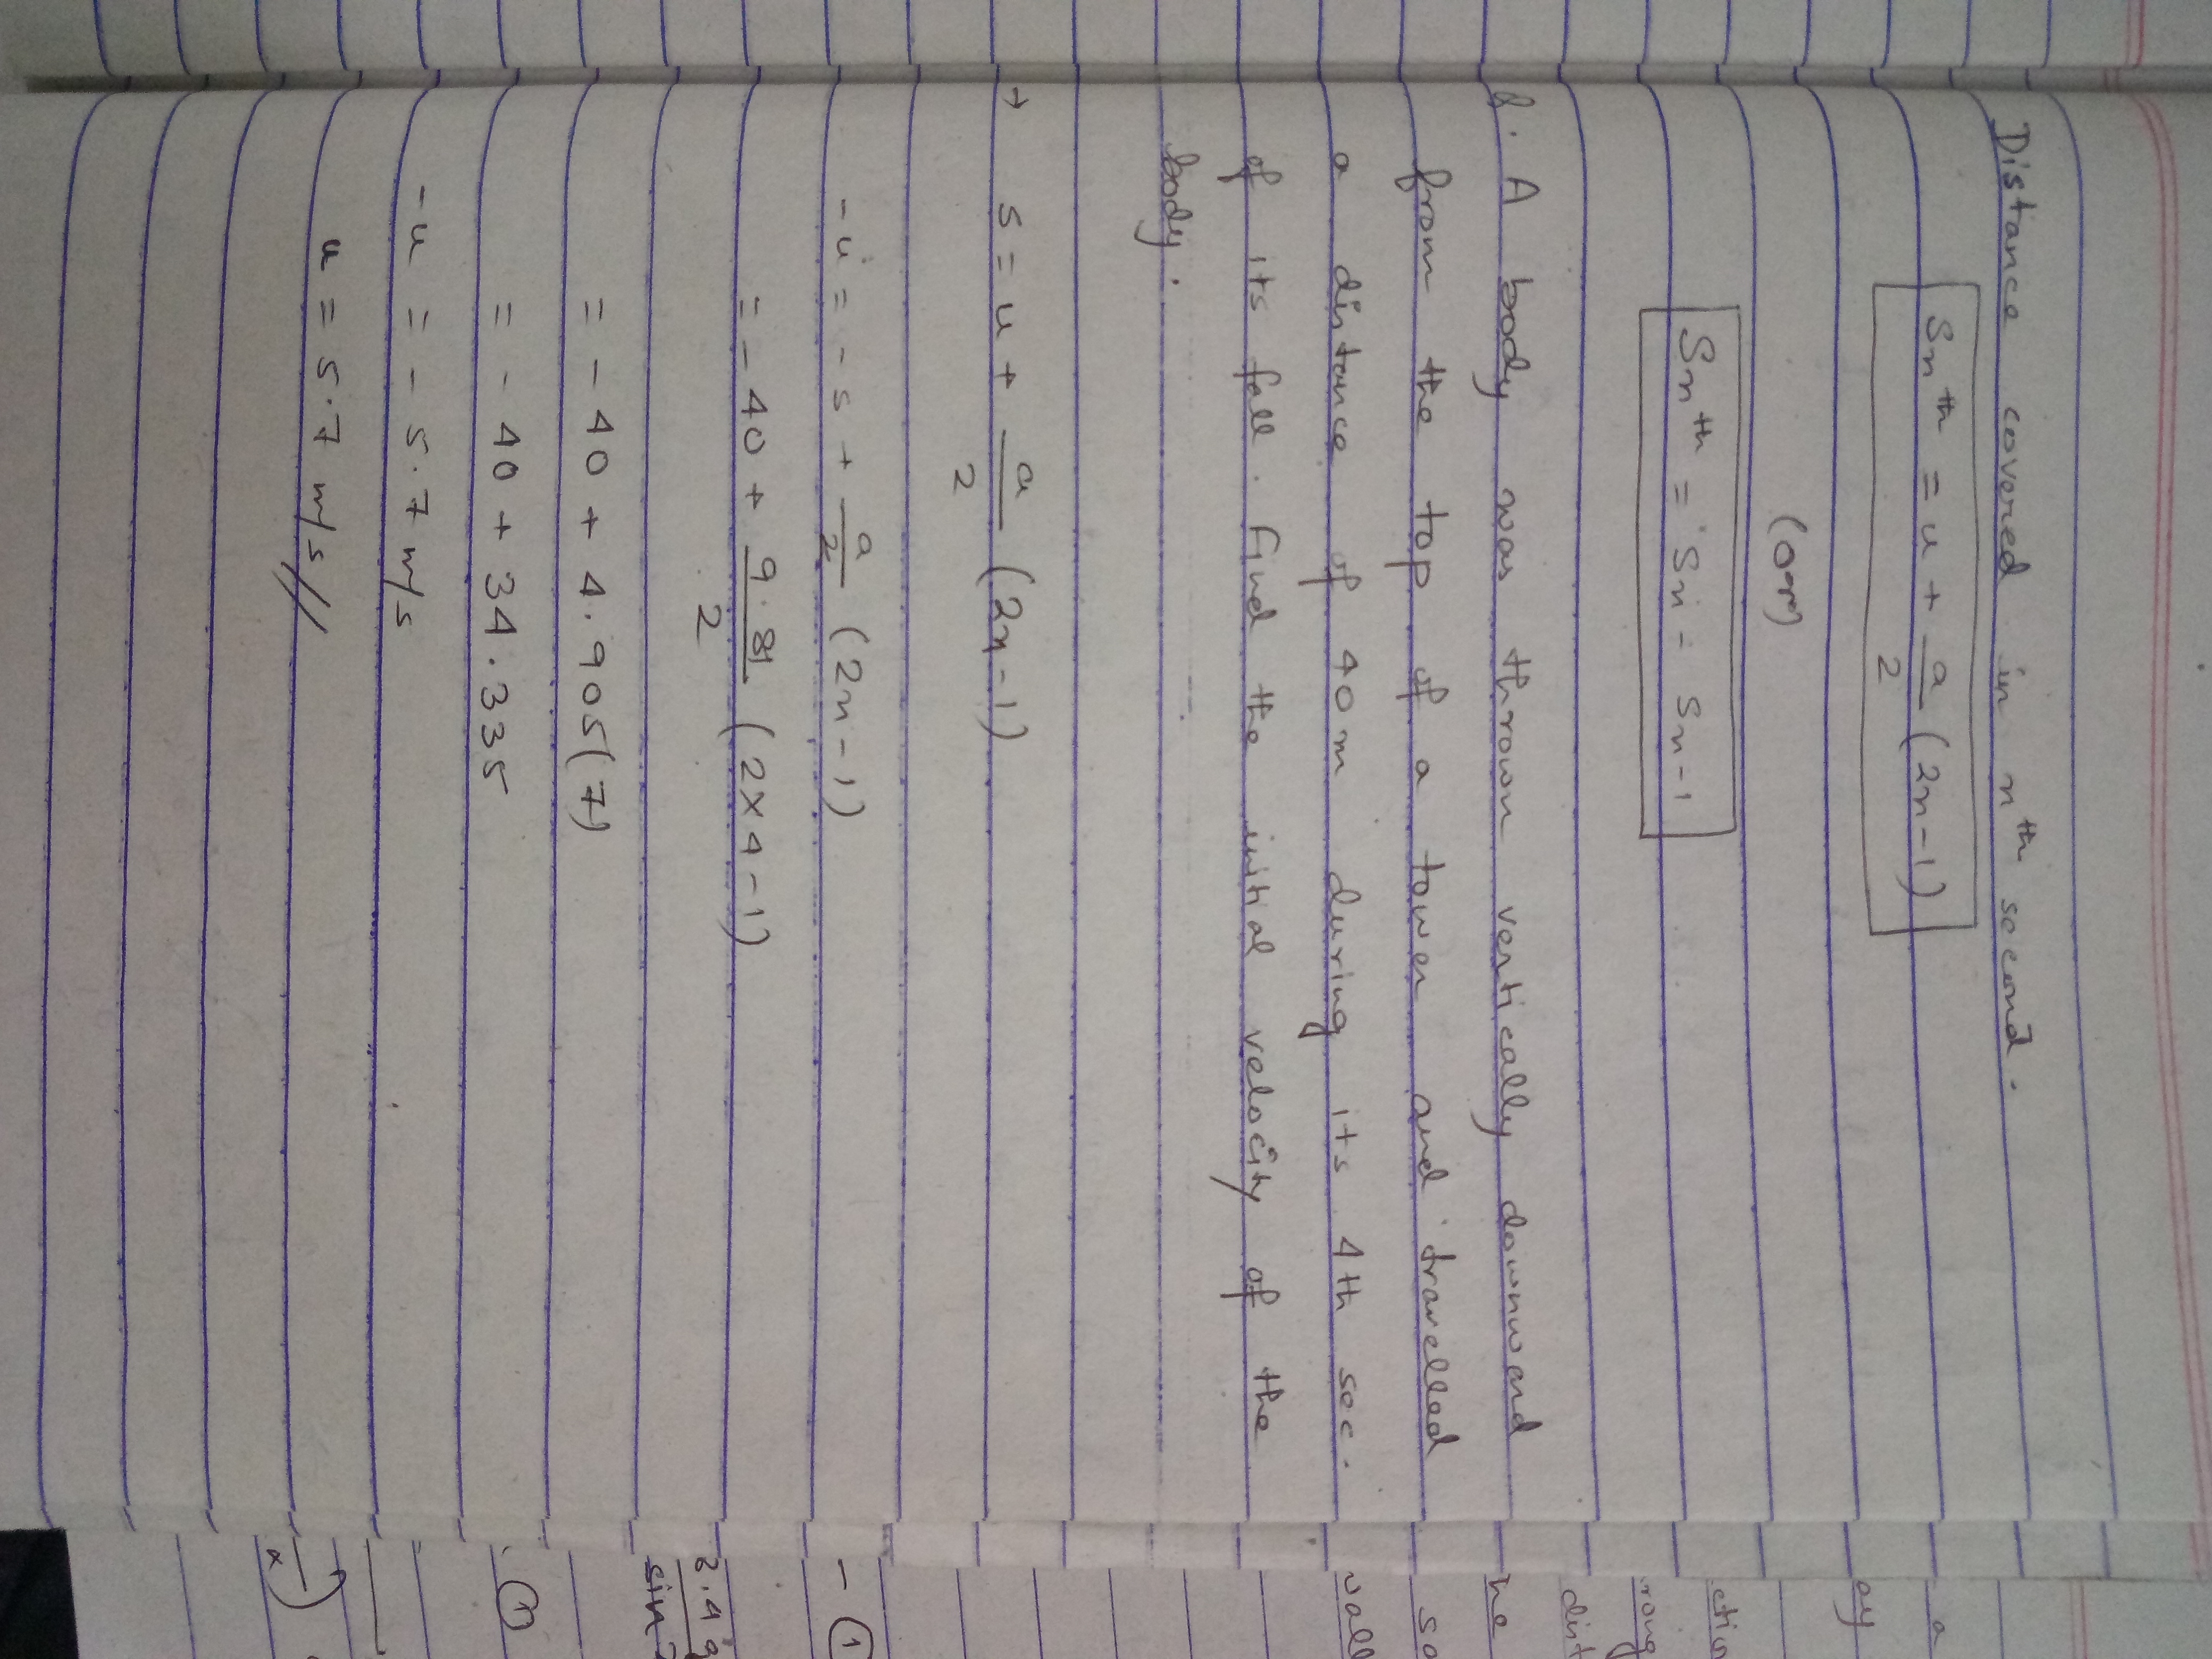 Distance covered in nth second.
Snth = u + a/2 (2n-1)
(or)
Snth = Sn - Sn-1
Q. A body was thrown vertically downward
from the top of a tower and travelled
a distance of 40m during its 4th sec.
of its fall. Find the initial velocity of the
body.
→ s = u + a/2 (2n-1)
-u = -s + a/2 (2n-1)
= -40 + 9.81/2 (2×4-1)
= -40 + 4.905(7)
= -40 + 34.335
-u = -5.7 m/s
u = 5.7 m/s//
a
ay
dist
so
- ①
sin
①